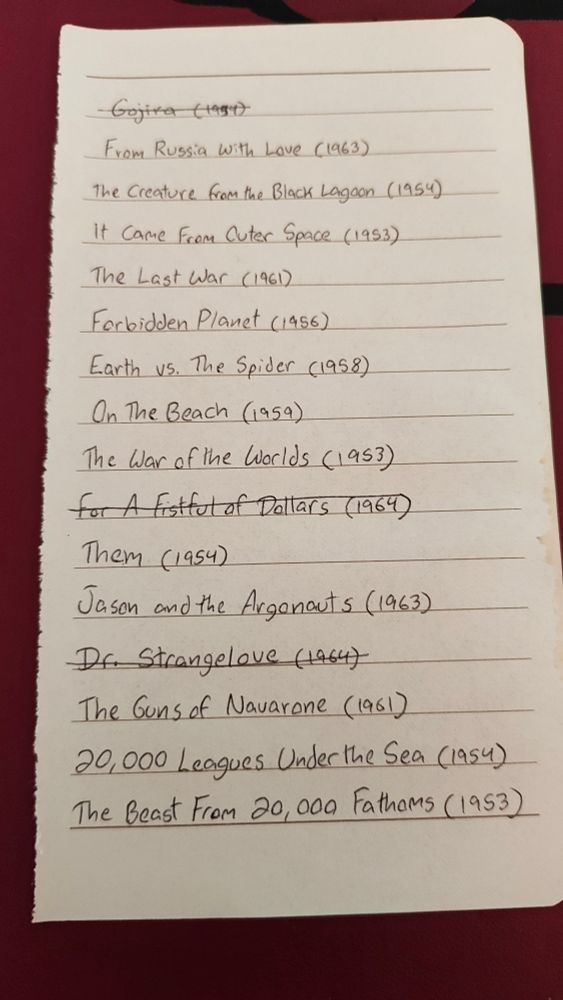 Gojira (1954)
From Russia With Love (1963)
The Creature from the Black Lagoon (1954)
It Came From Outer Space (1953)
The Last War (1961)
Forbidden Planet (1956)
Earth vs. The Spider (1958)
On The Beach (1959)
The War of the Worlds (1953)
For A Fistful of Dollars (1964)
Them (1954)
Jason and the Argonauts (1963)
Dr. Strangelove (1964)
The Guns of Navarone (1961)
20,000 Leagues Under the Sea (1954)
The Beast From 20,000 Fathoms (1953)